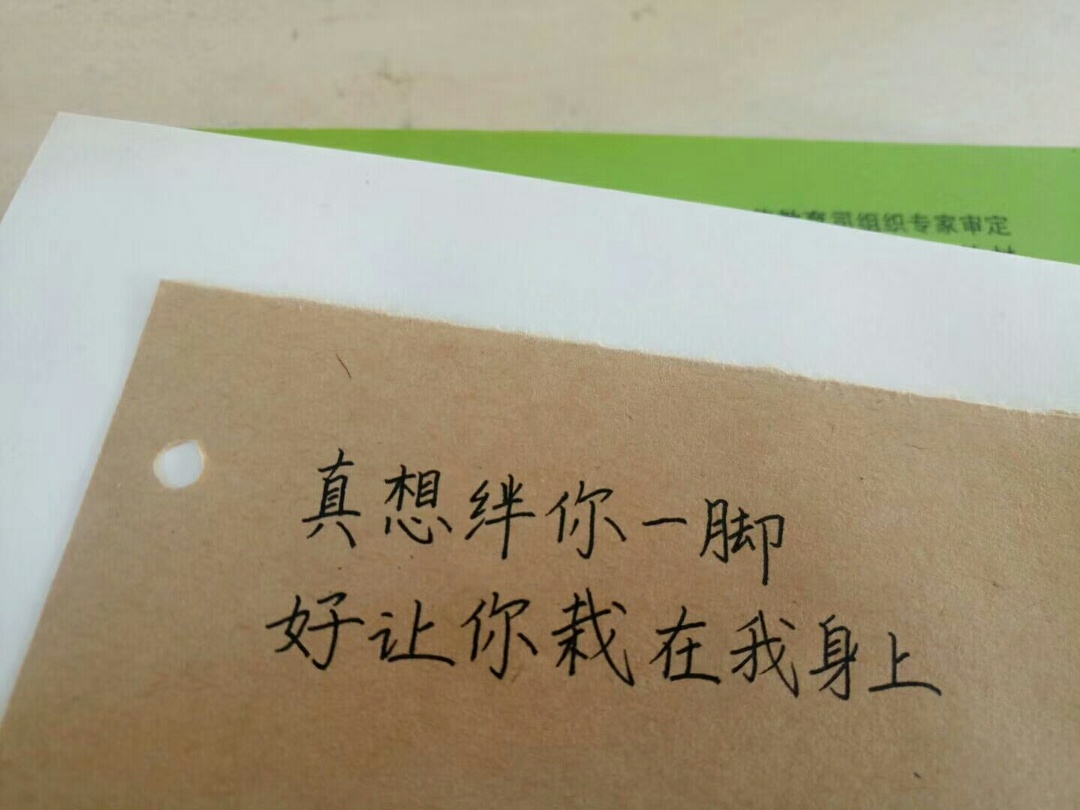 教育司组织专家审定
真想绊你一脚
好让你栽在我身上